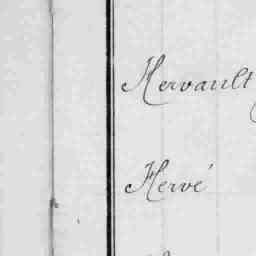 Hervault
Hervé